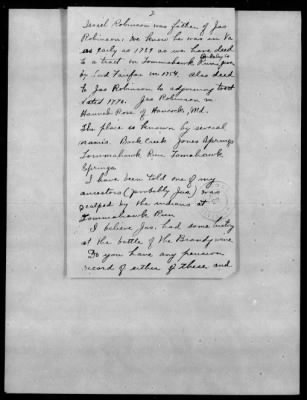 2
Israel Robinson was father of Jas
Robinson. We know he was in Va
as early as 1754 as we have deed
Berkeley Co
to a tract on Tommahawk Run given
by Lord Fairfax in 1754. Also deed
to Jas Robinson to adjoining tract
dated 1770. Jas Robinson m
Hannah Rose of Hancock, Md.
The place is known by several
names. Back Creek Jones Springs
Tommahawk Run Tomahawk
Springs
I have been told one of my
ancestors (probably Jas) was
scalped by the indians at
Tommahawk Run
I believe Jas. had some history
at the battle of the Brandywine
Do you have any pension
record of either of these and